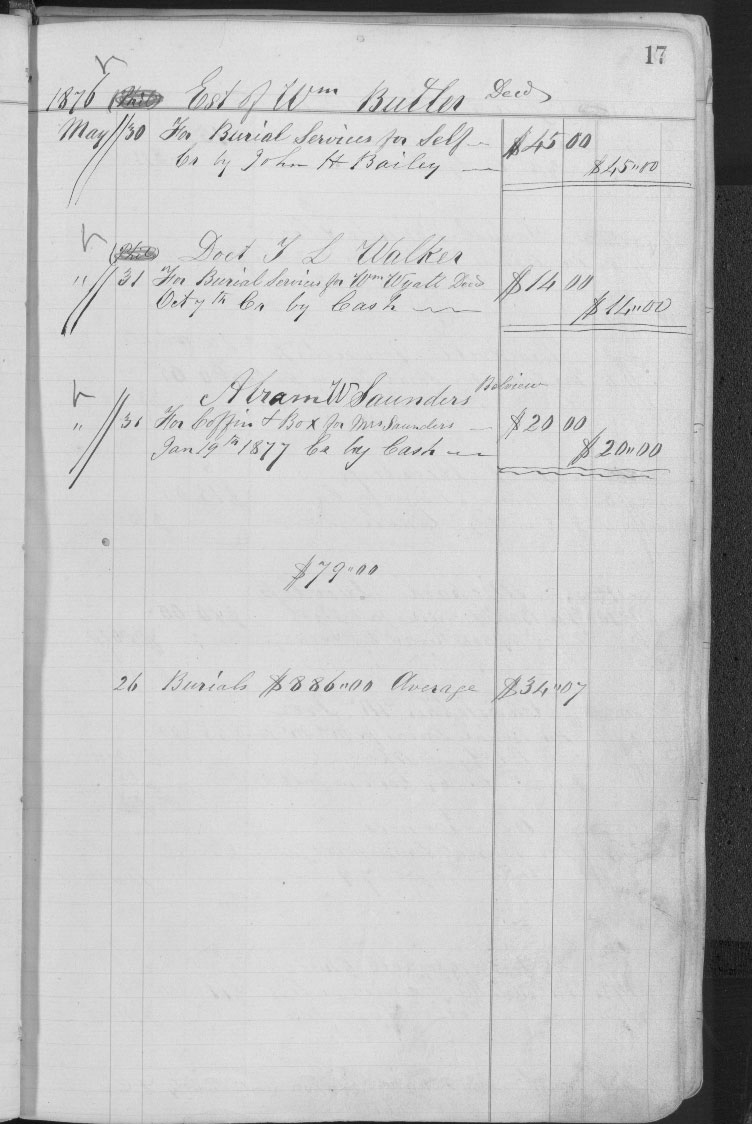 17
1876 Est of Wm Butler Decd
May 30 For Burial Services for Self $45 00
Cr by John H Bailey $45"00
Doct T L Walker
" 31 For Burial Services for Wm Wyatt Decd $14 00
Oct 7th Cr by Cash $14"00
Abram W Saunders Belview
" 31 For Coffin & Box for Mrs Saunders $20 00
Jan 19th 1877 Cr by Cash $20"00
$79"00
26 Burials $886"00 Average $34"07